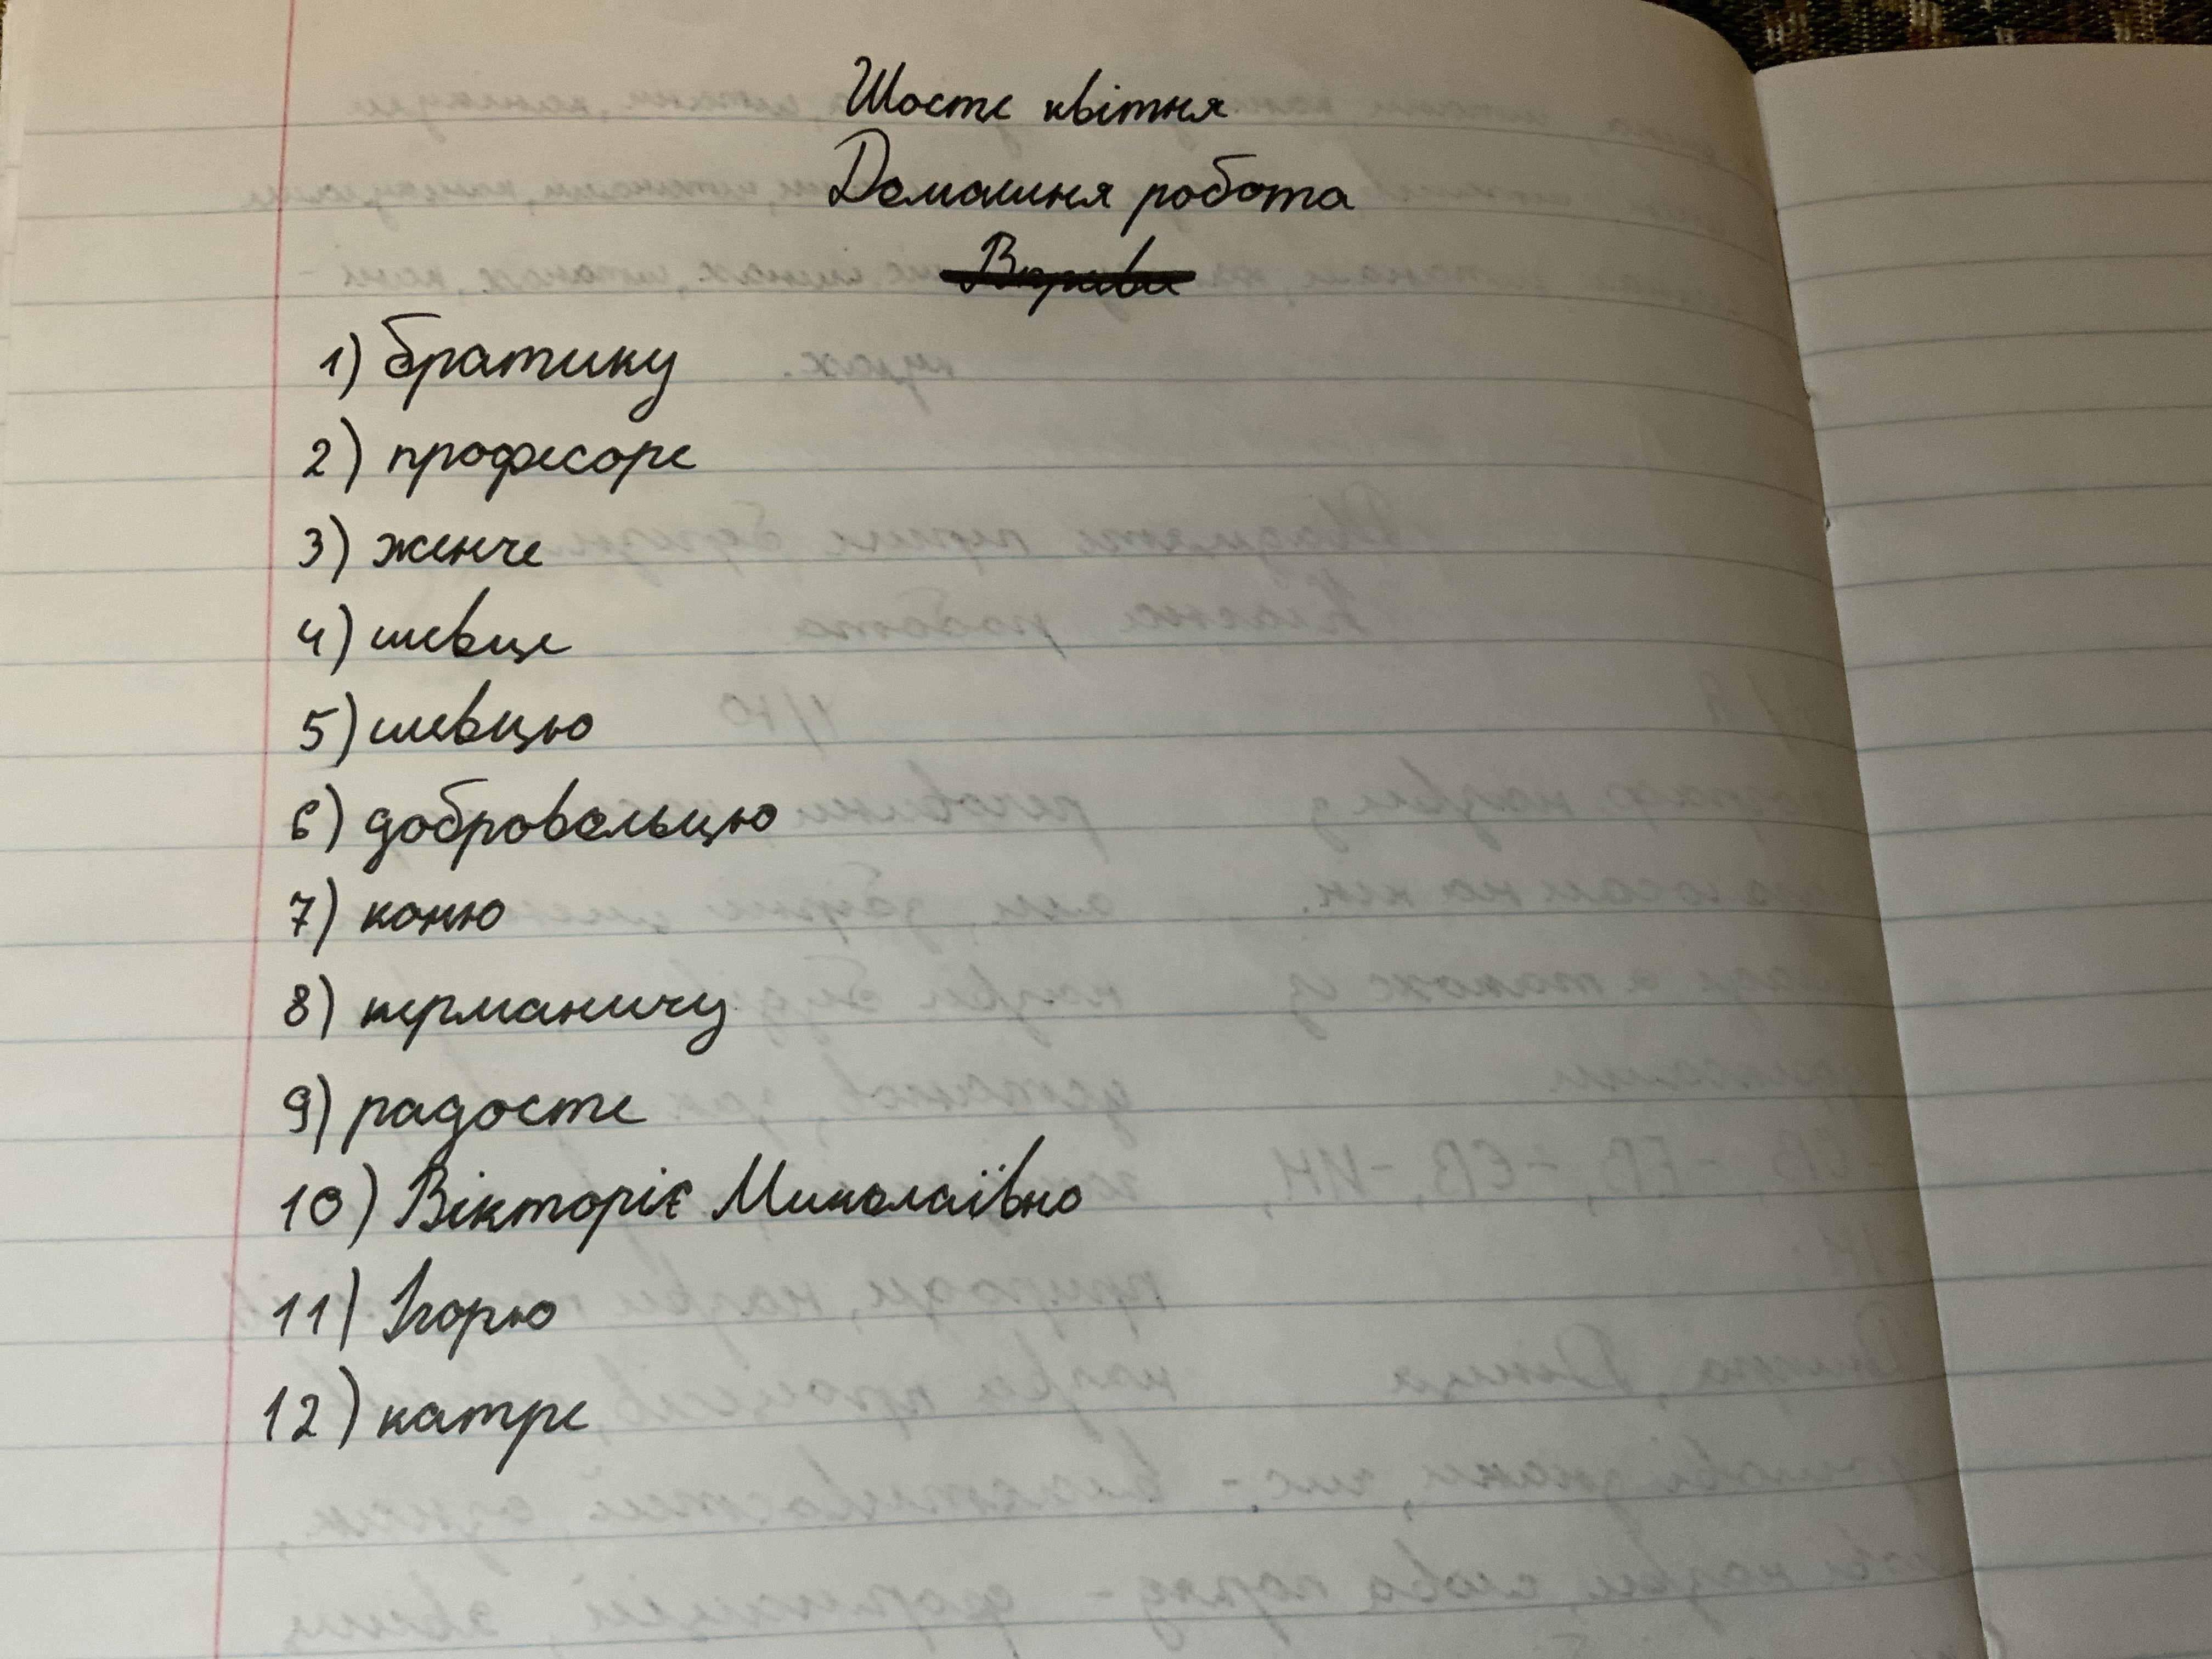 Шосте квітня
Домашня робота
1) братику
2) професоре
3) женче
4) шевце
5) шевцю
6) добровольцю
7) коню
8) керманичу
9) радосте
10) Вікторіє Миколаївно
11) Ігорю
12) катре